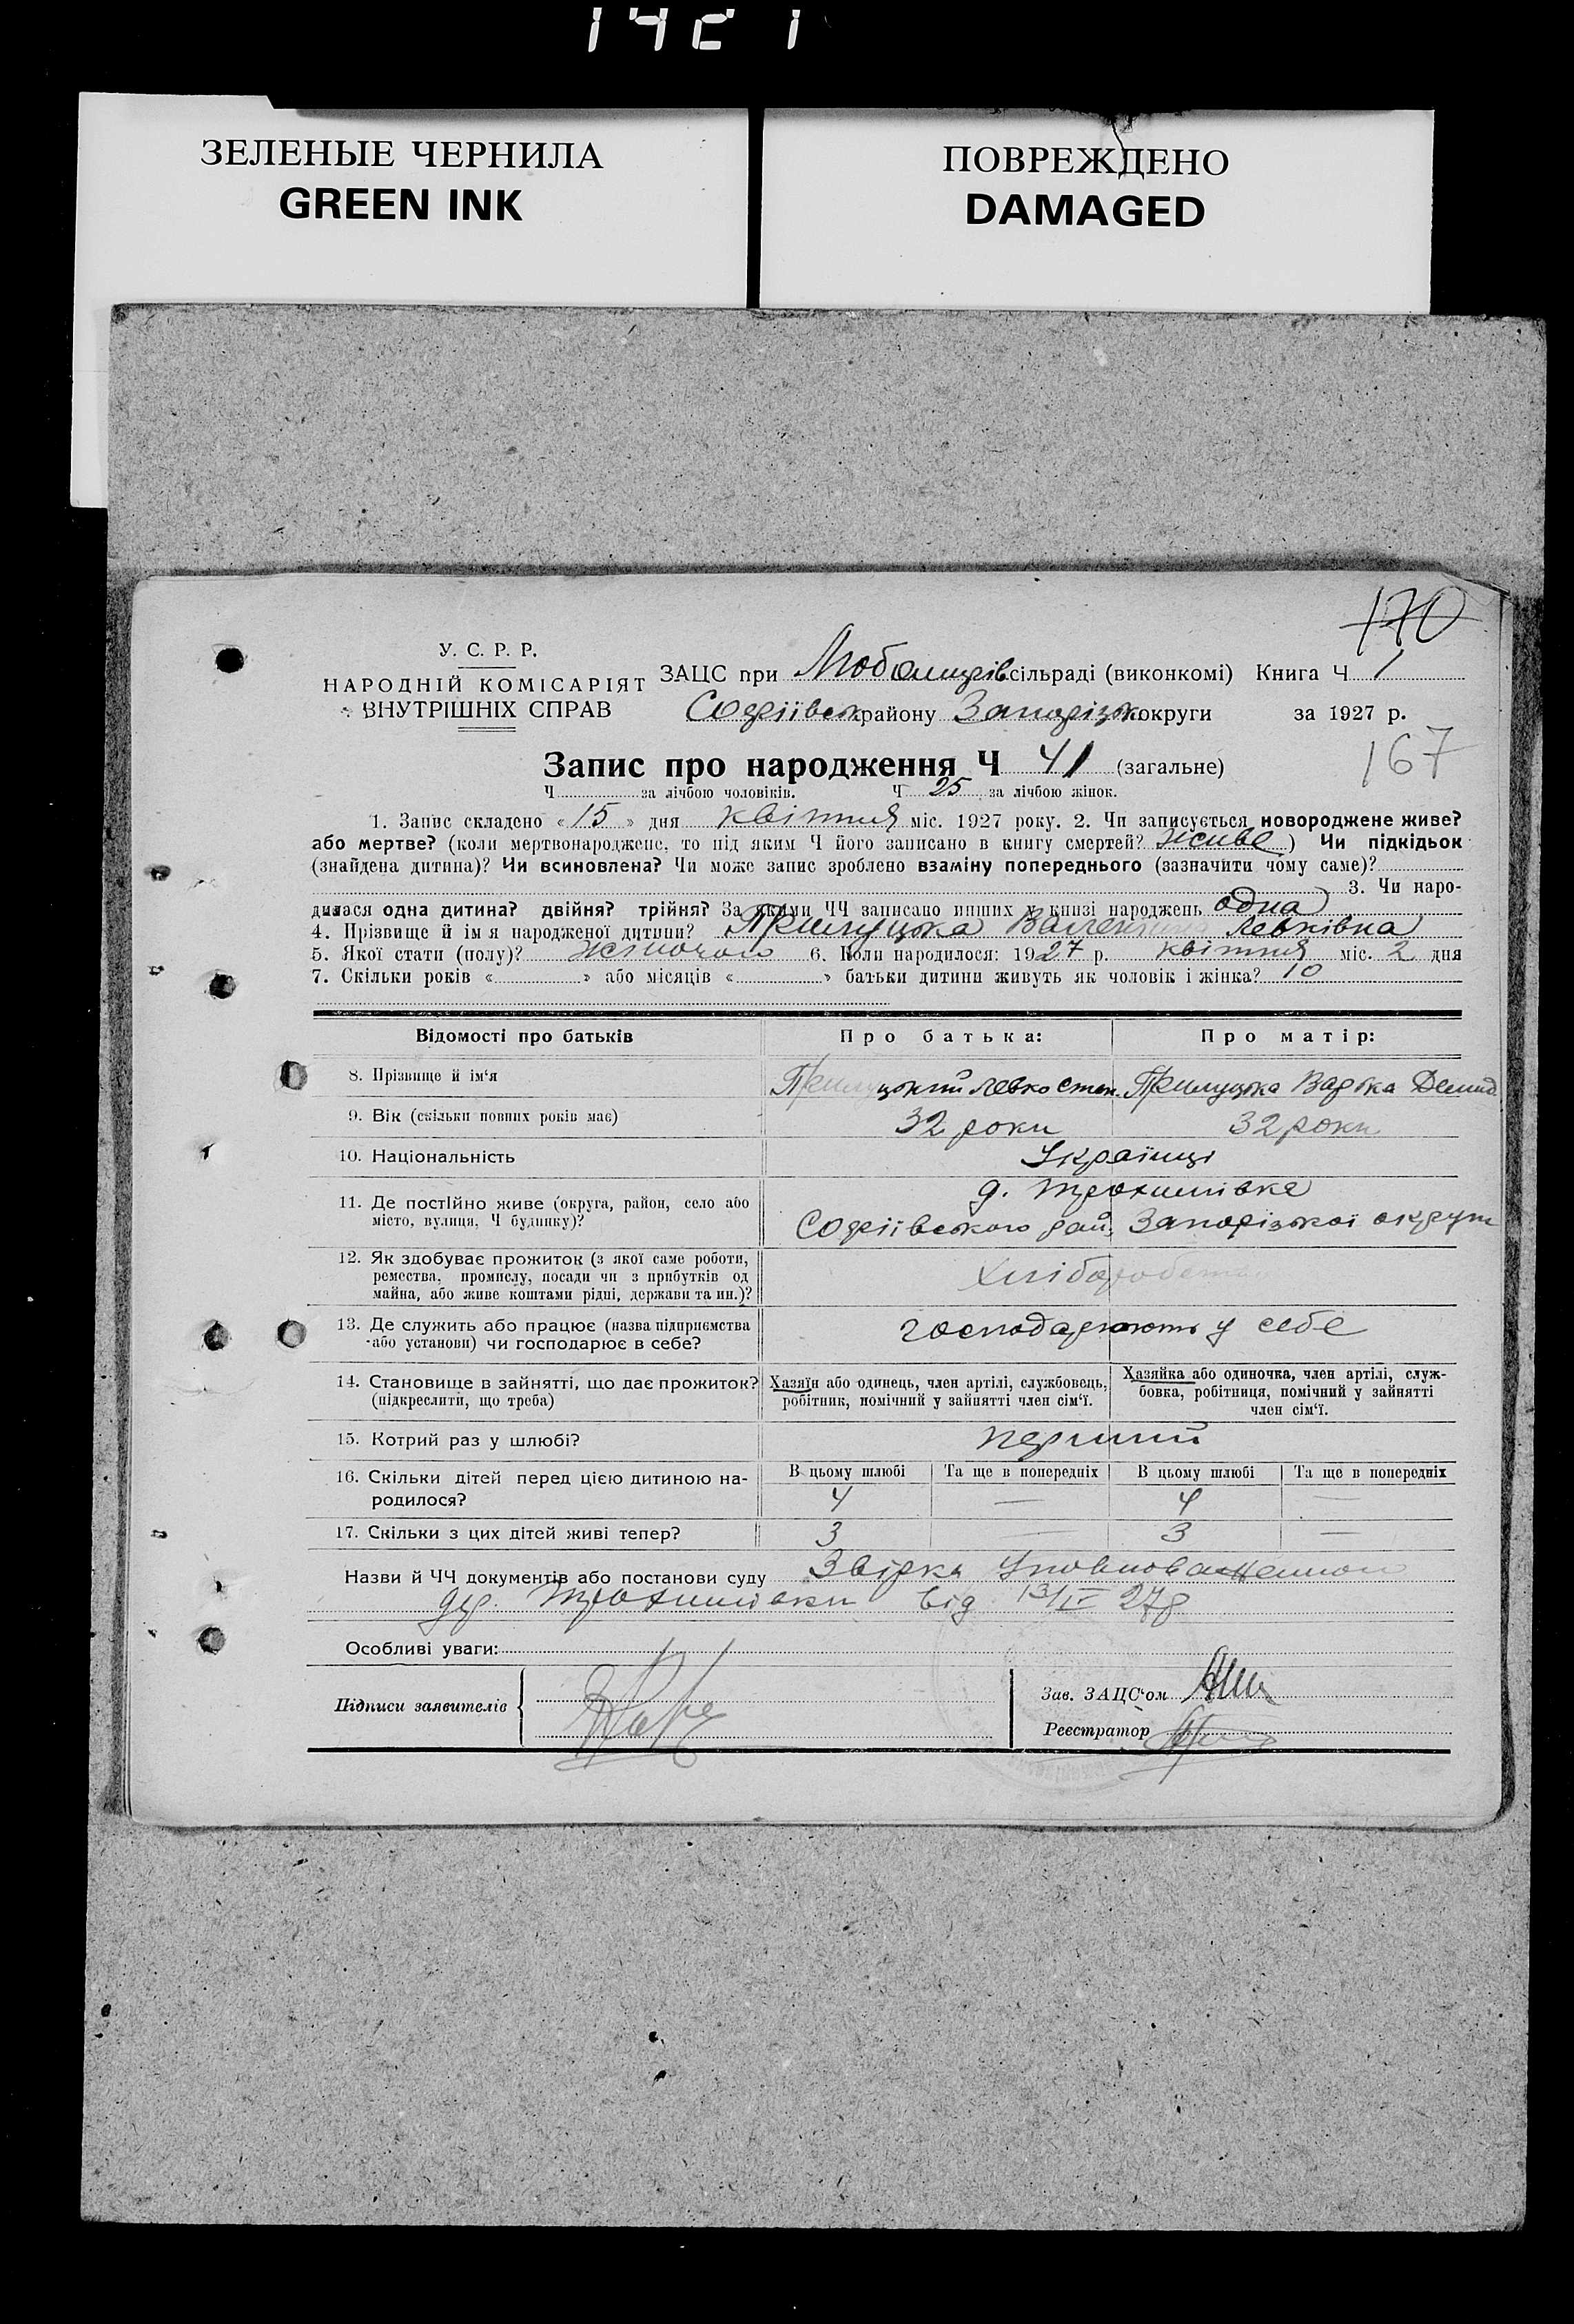 ЗЕЛЕНЫЕ ЧЕРНИЛА
GREEN INK
ПОВРЕЖДЕНО
DAMAGED
170
У. С. Р. Р.
НАРОДНІЙ КОМІСАРІЯТ
ВНУТРІШНІХ СПРАВ
ЗАЦС при Любомирів сільраді (виконкомі) Книга Ч 1
Софіївськ району Запорізьк округи за 1927 р.
Запис про народження Ч 41 (загальне)
167
Ч за лічбою чоловіків. Ч 25 за лічбою жінок.
1. Запис складено «15» дня квітня міс. 1927 року. 2. Чи записується новороджене живе?
або мертве? (коли мертвонароджене, то під яким Ч його записано в книгу смертей? живе) Чи підкідьок
(знайдена дитина)? Чи всиновлена? Чи може запис зроблено взаміну попереднього (зазначити чому саме)?
3. Чи наро-
дилася одна дитина? двійня? трійня? За якими ЧЧ записано инших у книзі народжень одна
4. Прізвище й ім'я народженої дитини? Прилуцька Валентина Левківна
5. Якої стати (полу)? жіночого 6. Коли народилося: 1927 р. квітня міс. 2 дня
7. Скільки років « » або місяців « » батьки дитини живуть як чоловік і жінка? 10
Відомості про батьків Про батька: Про матір:
8. Прізвище й ім'я Прилуцький Левко Степ. Прилуцька Варька Демид.
9. Вік (скільки повних років має) 32 роки 32 роки
10. Національність Українці
11. Де постійно живе (округа, район, село або
місто, вулиця, Ч будинку)?
д. Трохимівка
Софіївського рай. Запорізької округи
12. Як здобуває прожиток (з якої саме роботи,
ремества, промислу, посади чи з прибутків од
майна, або живе коштами рідні, держави та ин.)?
13. Де служить або працює (назва підприємства
або установи) чи господарює в себе?
господарюють у себе
14. Становище в зайнятті, що дає прожиток?
(підкреслити, що треба)
Хазяїн або одинець, член артілі, службовець,
робітник, помічний у зайнятті член сім'ї.
Хазяйка або одиночка, член артілі, служ-
бовка, робітниця, помічний у зайнятті
член сім'ї.
15. Котрий раз у шлюбі? перший
16. Скільки дітей перед цією дитиною на-
родилося?
В цьому шлюбі Та ще в попередніх В цьому шлюбі Та ще в попередніх
4 — 4 —
17. Скільки з цих дітей живі тепер? 3 — 3 —
Назви й ЧЧ документів або постанови суду
дер. Трохимівки від 13/IV 27р
Особливі уваги:
Підписи заявителів
Зав. ЗАЦС'ом
Реєстратор